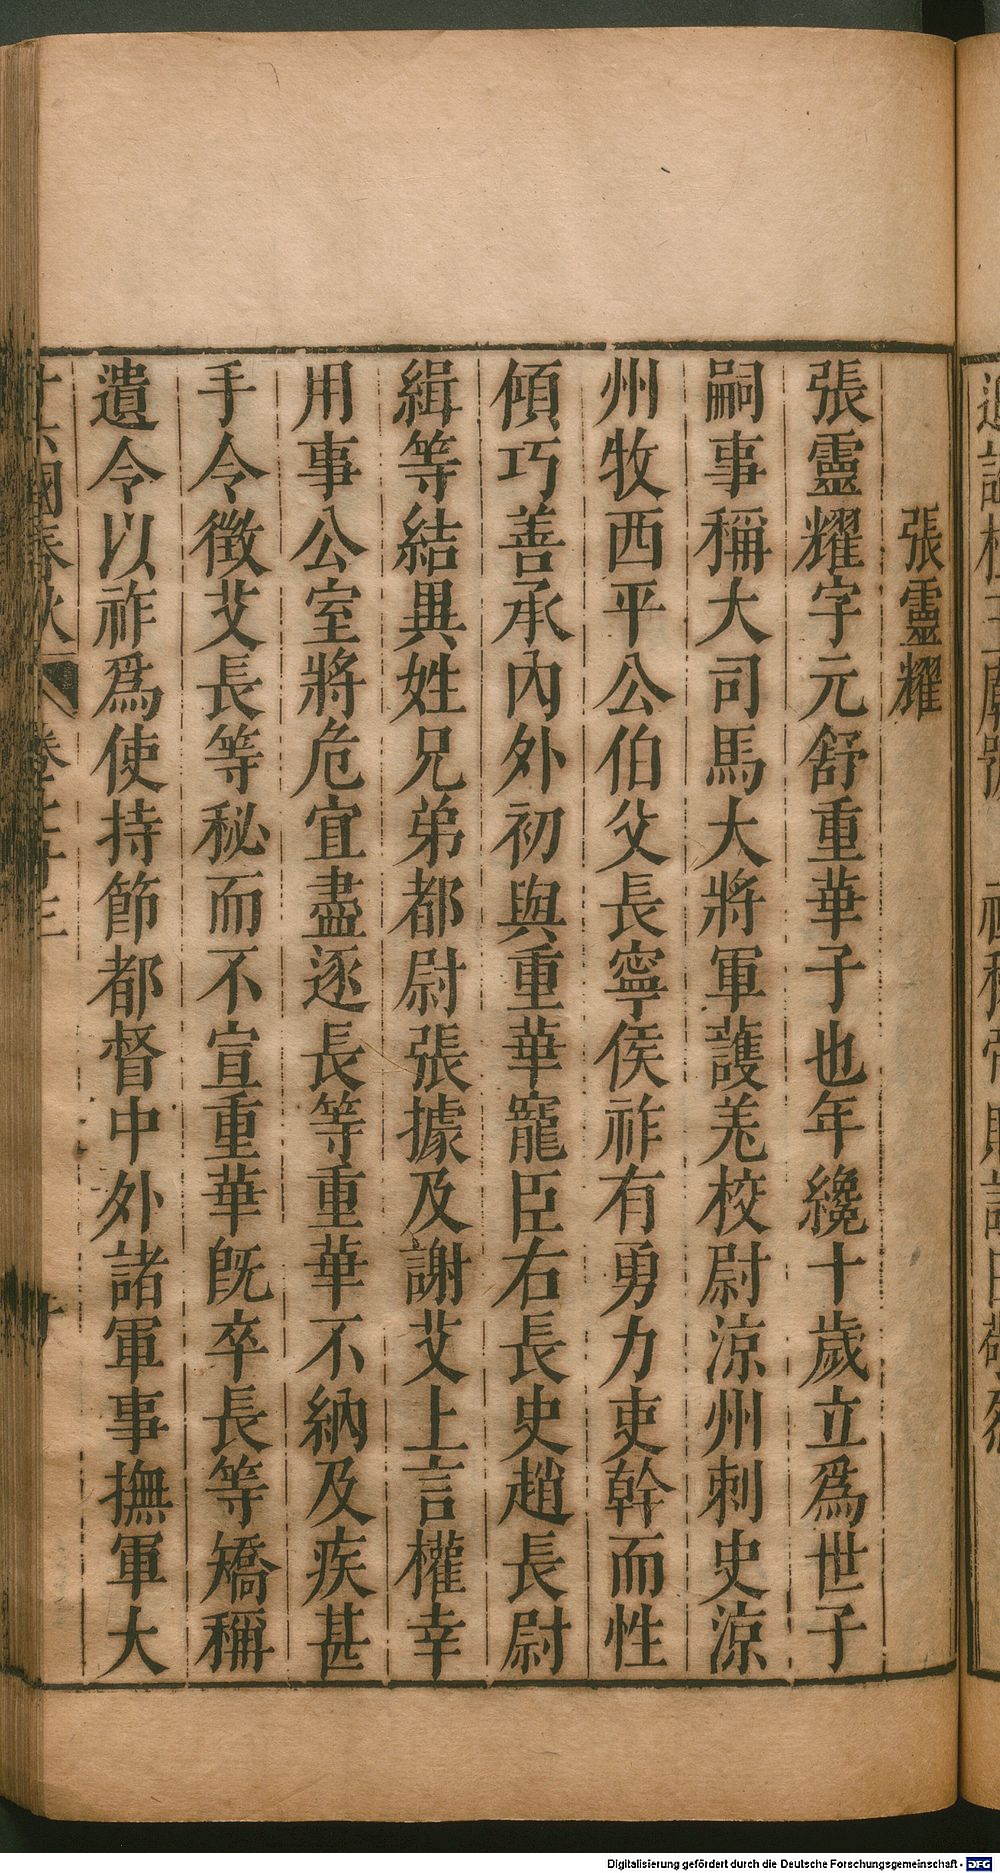 張靈耀
張靈耀字元舒重華子也年纔十歲立爲世子
嗣事稱大司馬大將軍護羗校尉涼州刺史涼
州牧西平公伯父長寧侯祚有勇力吏幹而性
傾巧善承內外初與重華寵臣右長史趙長尉
緝等結異姓兄弟都尉張據及謝艾上言權幸
用事公室將危宜盡逐長等重華不納及疾甚
手令徵艾長等秘而不宣重華旣卒長等矯稱
遺令以祚爲使持節都督中外諸軍事撫軍大
國春秋
Digitalisierung gefördert durch die Deutsche Forschungsgemeinschaft - DFG